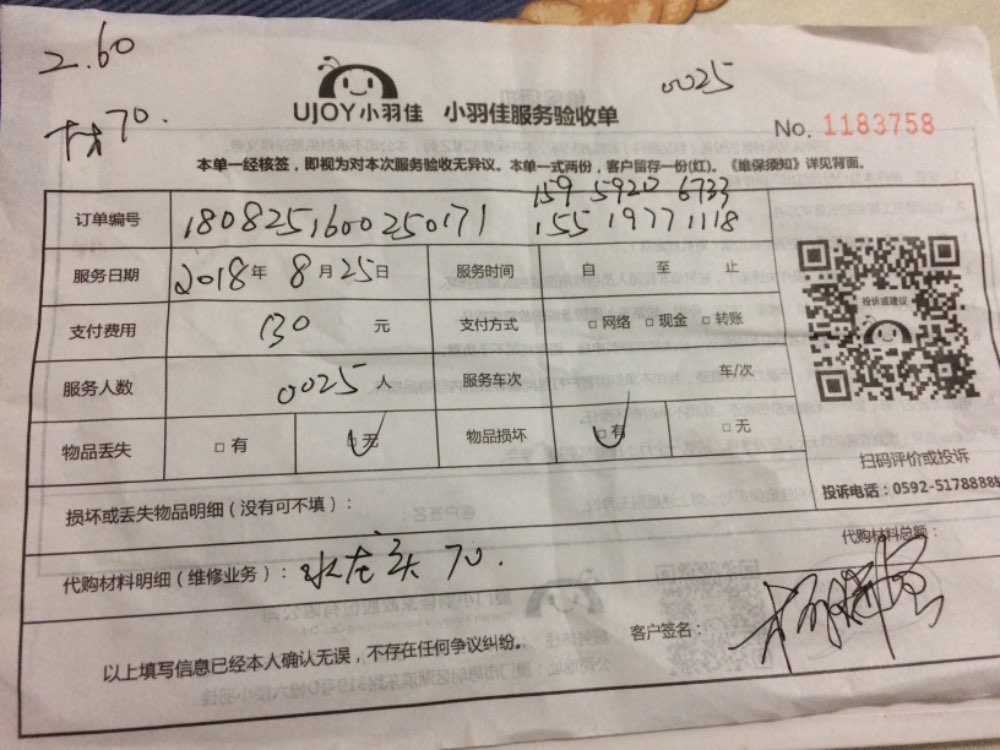 2.60
材70.
UJOY小羽佳 小羽佳服务验收单
0025
No. 1183758
本单一经核签，即视为对本次服务验收无异议。本单一式两份，客户留存一份(红)。《维保须知》详见背面。
159 5920 6733
订单编号 1808251600250171 155 1977 1118
服务日期 2018年 8月25日 服务时间 自 至 止
支付费用 130 元 支付方式 □网络 □现金 □转账
投诉或建议
服务人数 0025人 服务车次 车/次
物品丢失 □有 □无 物品损坏 □有 □无
扫码评价或投诉
投诉电话：0592-5178888
损坏或丢失物品明细（没有可不填）：
代购材料明细（维修业务）：水龙头 70. 代购材料总额：
以上填写信息已经本人确认无误，不存在任何争议纠纷。 客户签名：